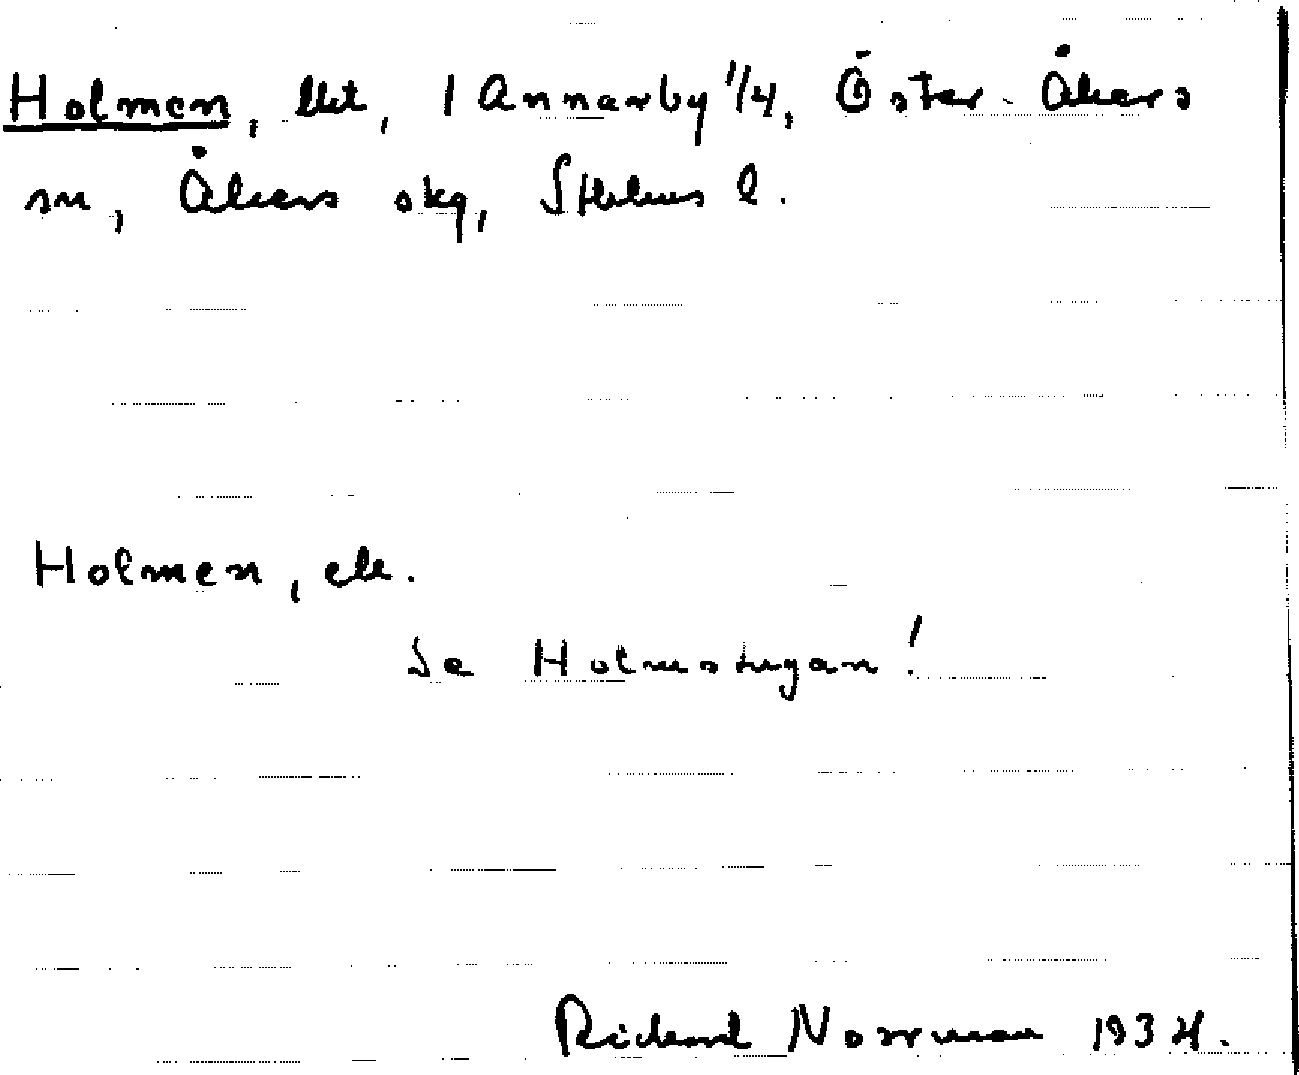 Holmen, lht, 1 Annarby 1/4, Öster-Åkers
sn, Åkers skg, Sthlms l.
Holmen, ek.
Se Holmstugan!
Rickard Norrman 1934.